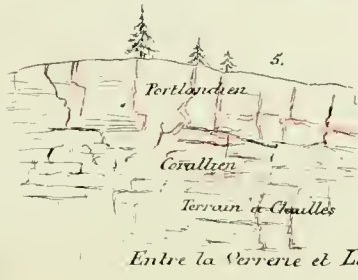 5.
Portlandien
Corallien
Terrain à Chailles
Entre la Verrerie et L